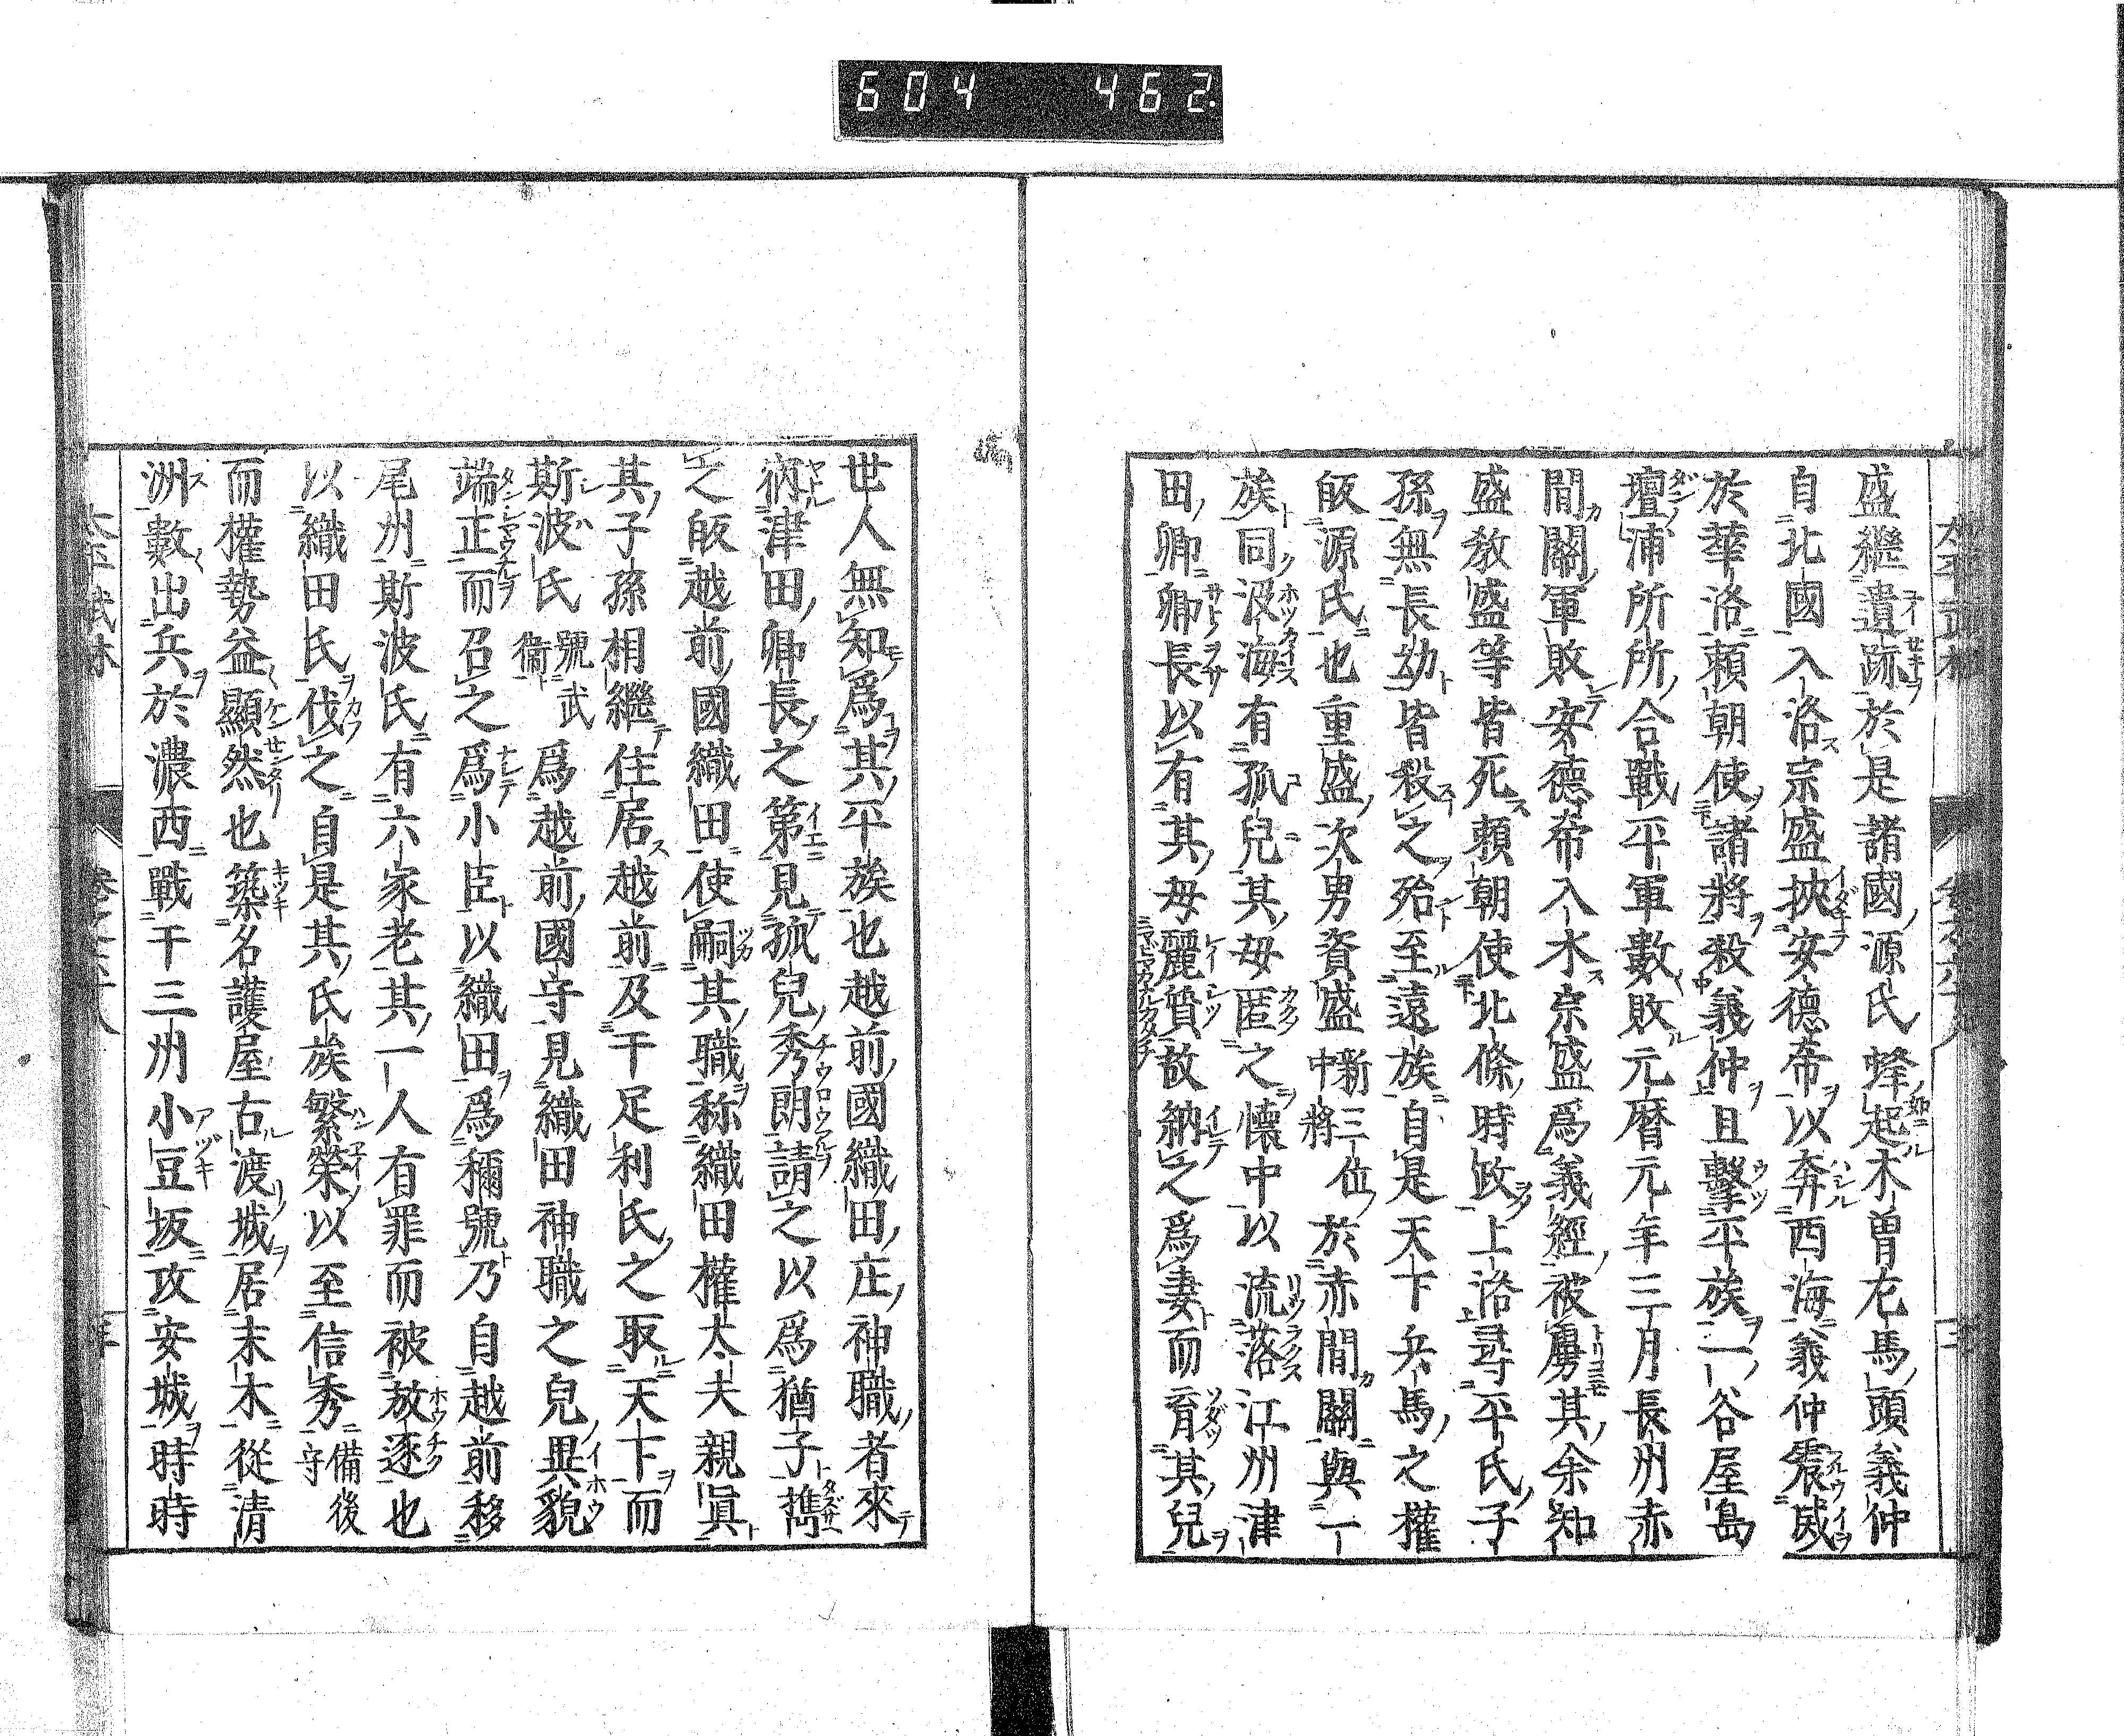 604 462.
盛繼遺跡於是諸國源氏蜂起木曽左馬頭義仲
自北國入洛宗盛挾安德帝以奔西海義仲震威
於華洛賴朝使諸將殺義仲且擊平族一谷屋島
壇浦所所合戰平軍數敗元曆元年三月長州赤
間關軍敗安德帝入水宗盛爲義經被虜其余知
盛教盛等皆死賴朝使北條時政上洛尋平氏子
孫無長幼皆殺之殆至遠族自是天下兵馬之權
皈源氏也重盛次男資盛新三位中將於赤間關與一
族同沒海有孤兒其母匿之懷中以流落江州津
田卿卿長以有其母麗質故納之爲妻而育其兒
世人無知爲其平族也越前國織田庄神職者來
宿津田卿長之第見孤兒秀朗請之以爲猶子携
之皈越前國織田使嗣其職称織田權太夫親眞
其子孫相繼住居越前及于足利氏之取天下而
斯波氏號武衞爲越前國守見織田神職之兒異貌
端正而召之爲小臣以織田爲稱號乃自越前移
尾州斯波氏有六家老其一人有罪而被放逐也
以織田氏伐之自是其氏族繁榮以至信秀備後守
而權勢益顯然也築名護屋古渡城居末木從清
洲數出兵於濃西戰于三州小豆坂攻安城時時